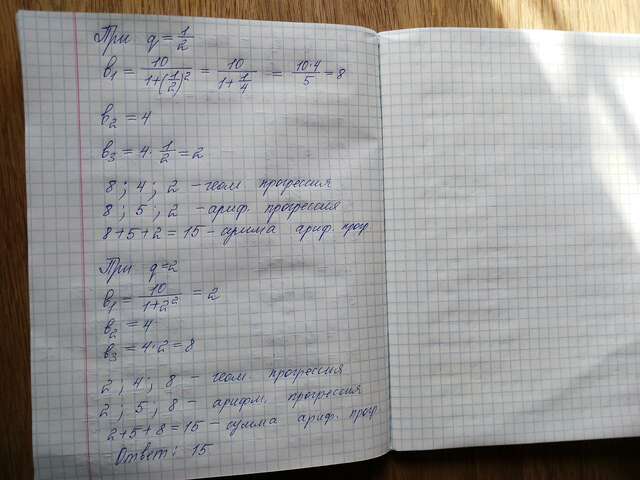 При q = 1/2
b₁ = 10/(1+(1/2)²) = 10/(1+1/4) = 10·4/5 = 8
b₂ = 4
b₃ = 4 · 1/2 = 2
8 ; 4 ; 2 – геом прогрессия
8 ; 5 ; 2 – ариф. прогрессия
8 + 5 + 2 = 15 – сумма ариф. прог
При q = 2
b₁ = 10/(1+2²) = 2
b₂ = 4
b₃ = 4·2 = 8
2 ; 4 ; 8 – геом. прогрессия
2 ; 5 ; 8 – арифм. прогрессия
2 + 5 + 8 = 15 – сумма ариф. прог
Ответ: 15